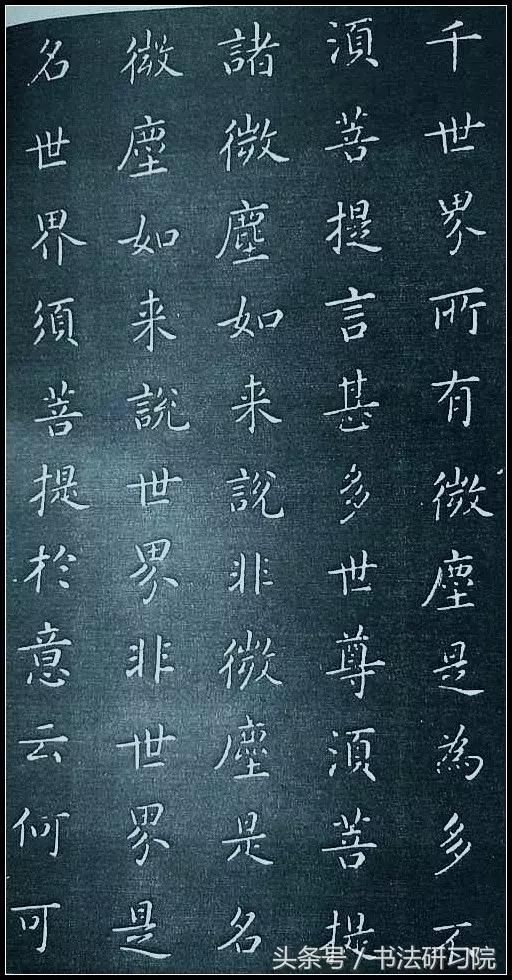 千世界所有微塵是為多不
須菩提言甚多世尊須菩提
諸微塵如来說非微塵是名
微塵如来說世界非世界是
名世界須菩提於意云何可
头条号／书法研习院